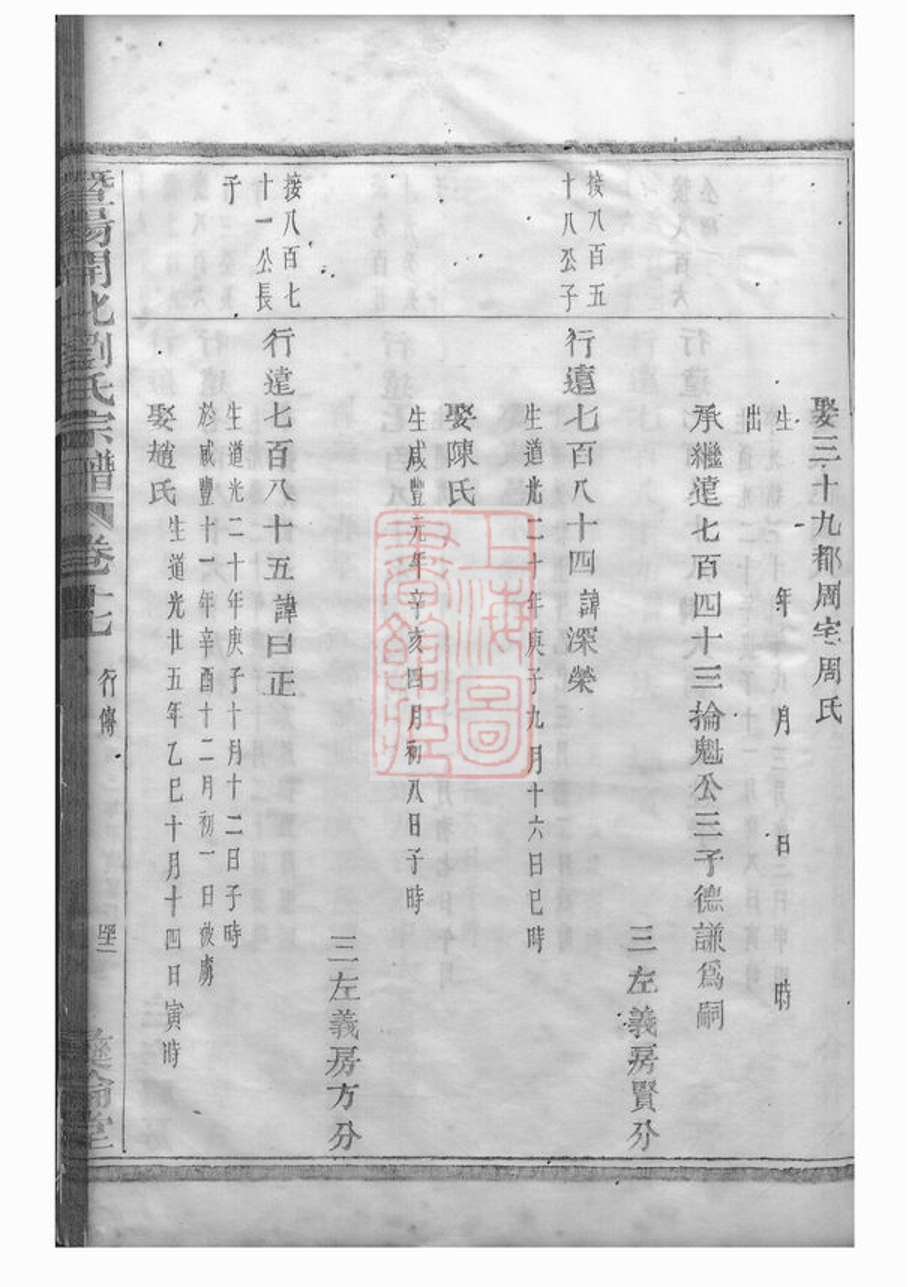 娶三十九都周宅周氏
生　年　月　日　時
出
承繼遠七百四十三掄魁公三子德謙爲嗣
三左義房賢分
接八百五
十八公子
行遠七百八十四諱深榮
生道光二十年庚子九月十六日巳時
娶陳氏
生咸豐元年辛亥四月初八日子時
三左義房方分
接八百七
十一公長
子
行遠七百八十五諱曰正
生道光二十年庚子十月十二日子時
於咸豐十一年辛酉十二月初一日被虜
娶趙氏
生道光廿五年乙巳十月十四日寅時
暨陽開化劉氏宗譜
卷十七
行傳
彝倫堂
上海圖書館藏